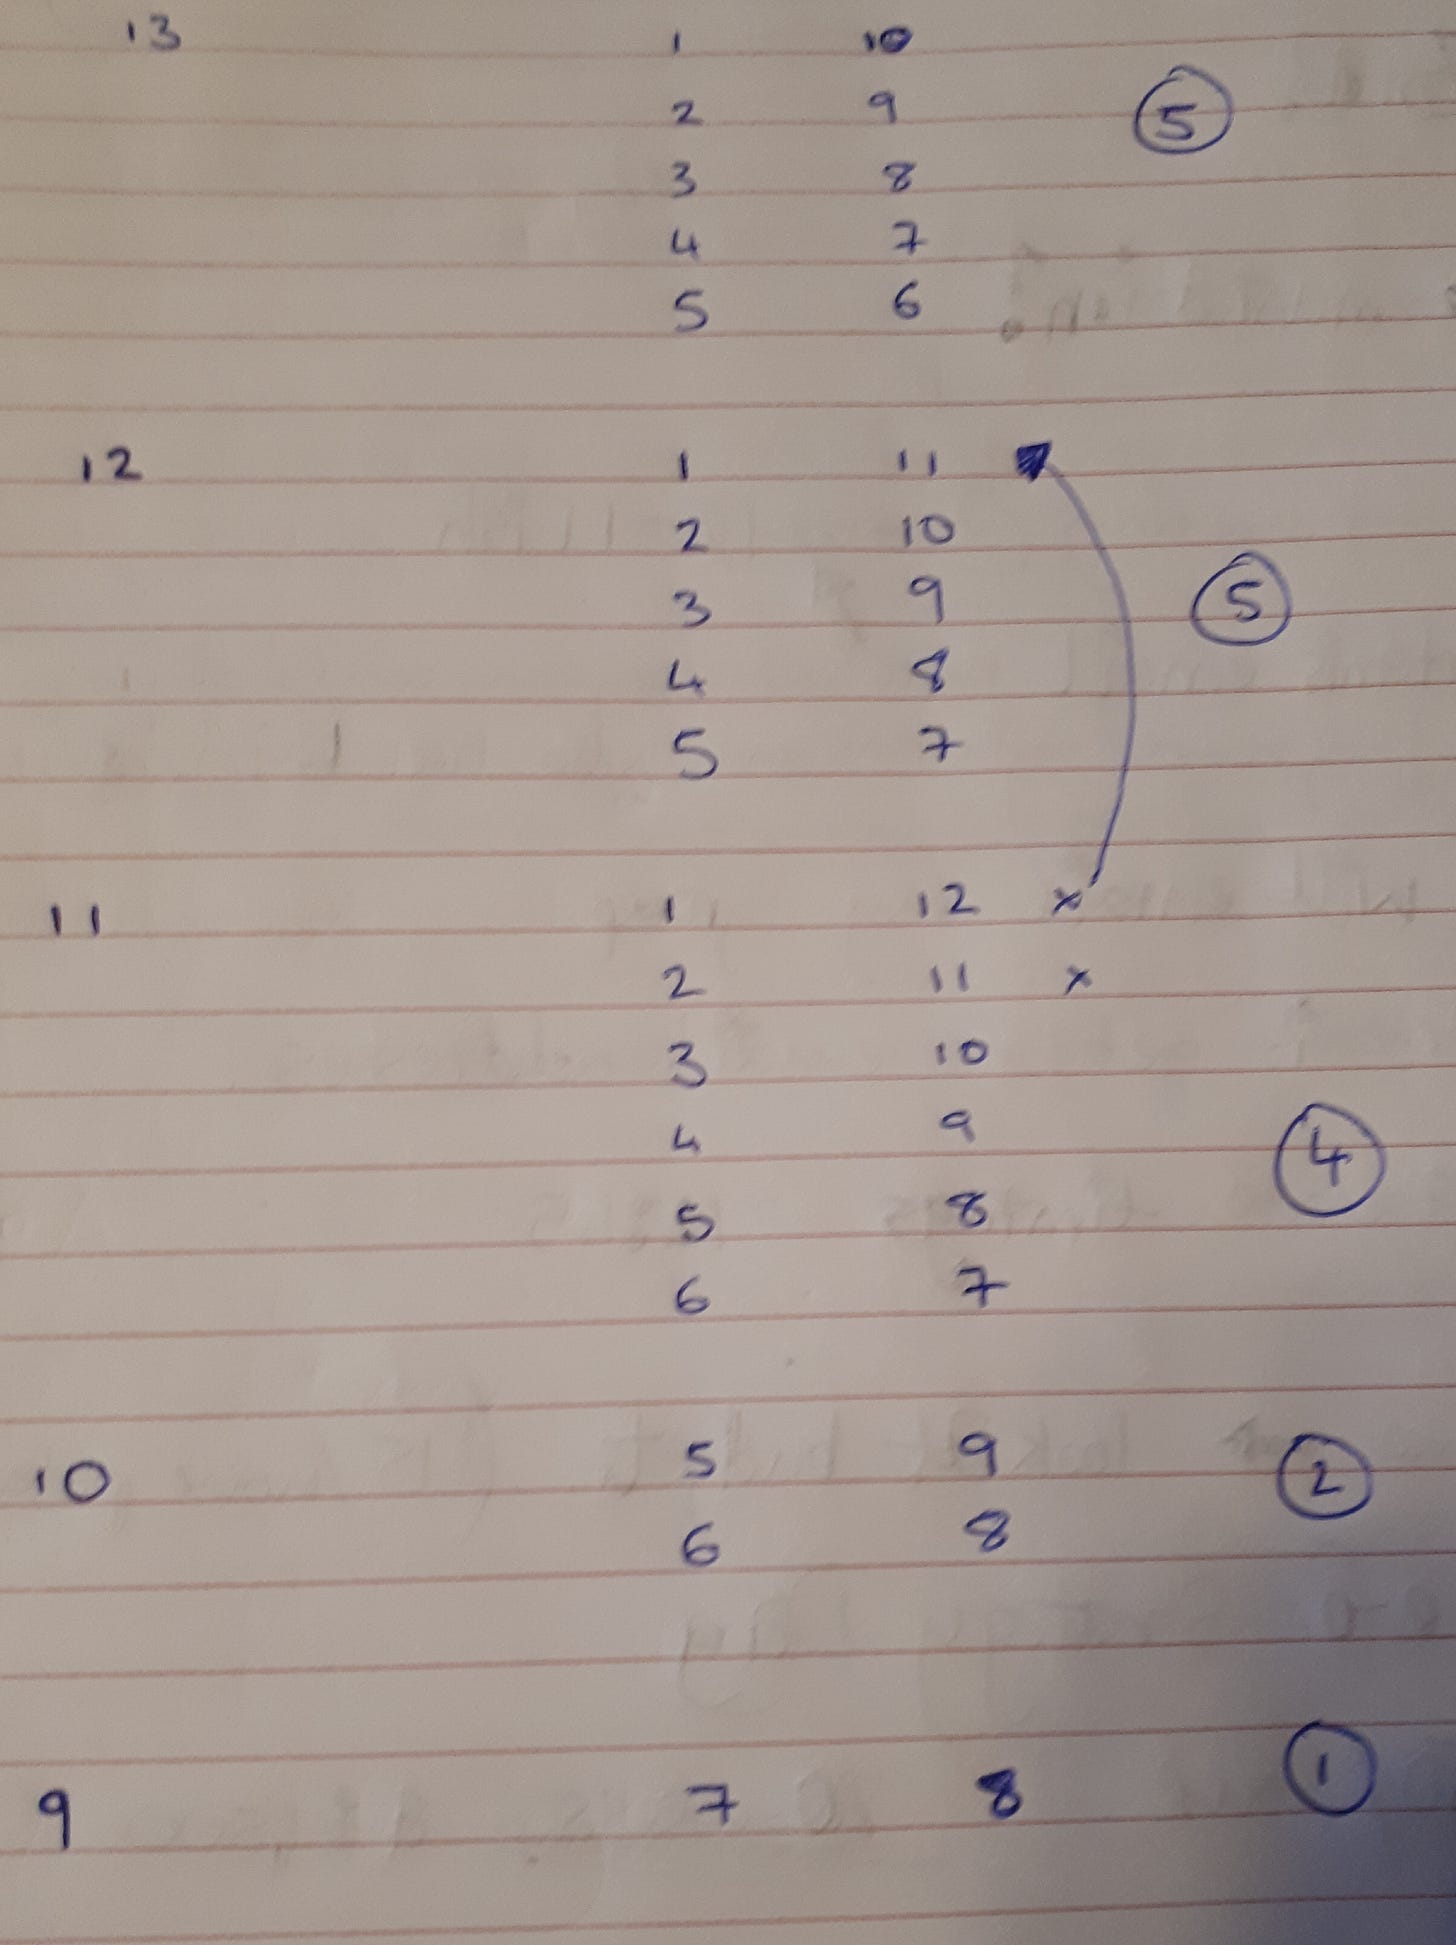 13 1 10
2 9 5
3 8
4 7
5 6
12 1 11
2 10
3 9 5
4 8
5 7
11 1 12 x
2 11 x
3 10
4 9 4
5 8
6 7
10 5 9 2
6 8
9 7 8 1